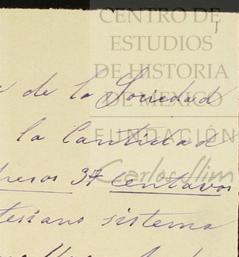 CENTRO DE
ESTUDIOS
DE HISTORIA
DE MÉXICO
FUNDACIÓN
Carlos Slim
de la Sociedad
la Cantidad
pesos 37 centavos
sistema